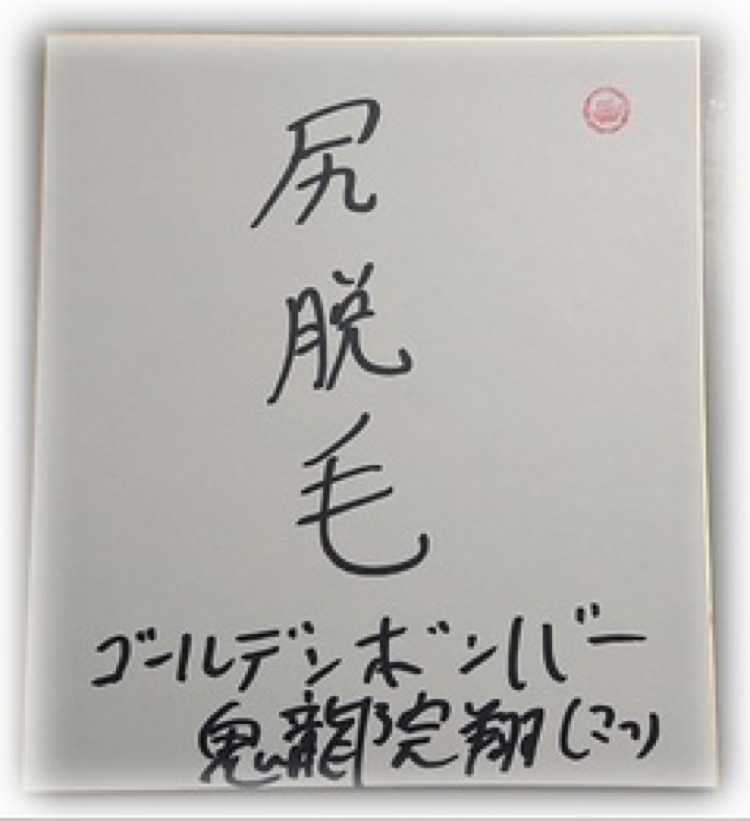 尻脱毛
ゴールデンボンバー
鬼龍院翔(こつ)